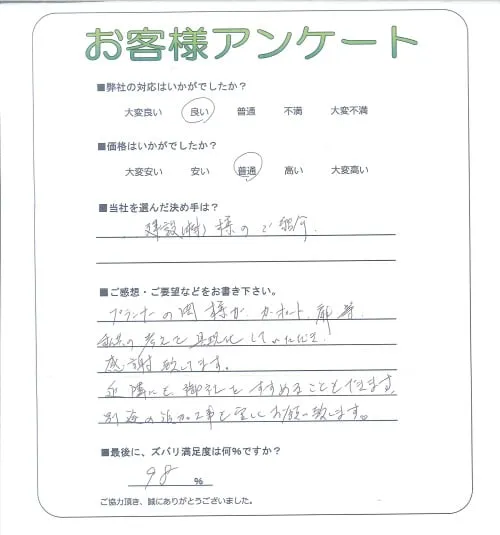 お客様アンケート
■弊社の対応はいかがでしたか？
大変良い 良い 普通 不満 大変不満
■価格はいかがでしたか？
大変安い 安い 普通 高い 大変高い
■当社を選んだ決め手は？
建設(株)様のご紹介.
■ご感想・ご要望などをお書き下さい。
プランナーの岡様が、カーポート、扉等.
私共の考えを具現化していただき.
感謝致してます。
近隣にも御社をすすめることもできます.
別途の追加工事も宜しくお願い致します。
■最後に、ズバリ満足度は何%ですか？
98 %
ご協力頂き、誠にありがとうございました。